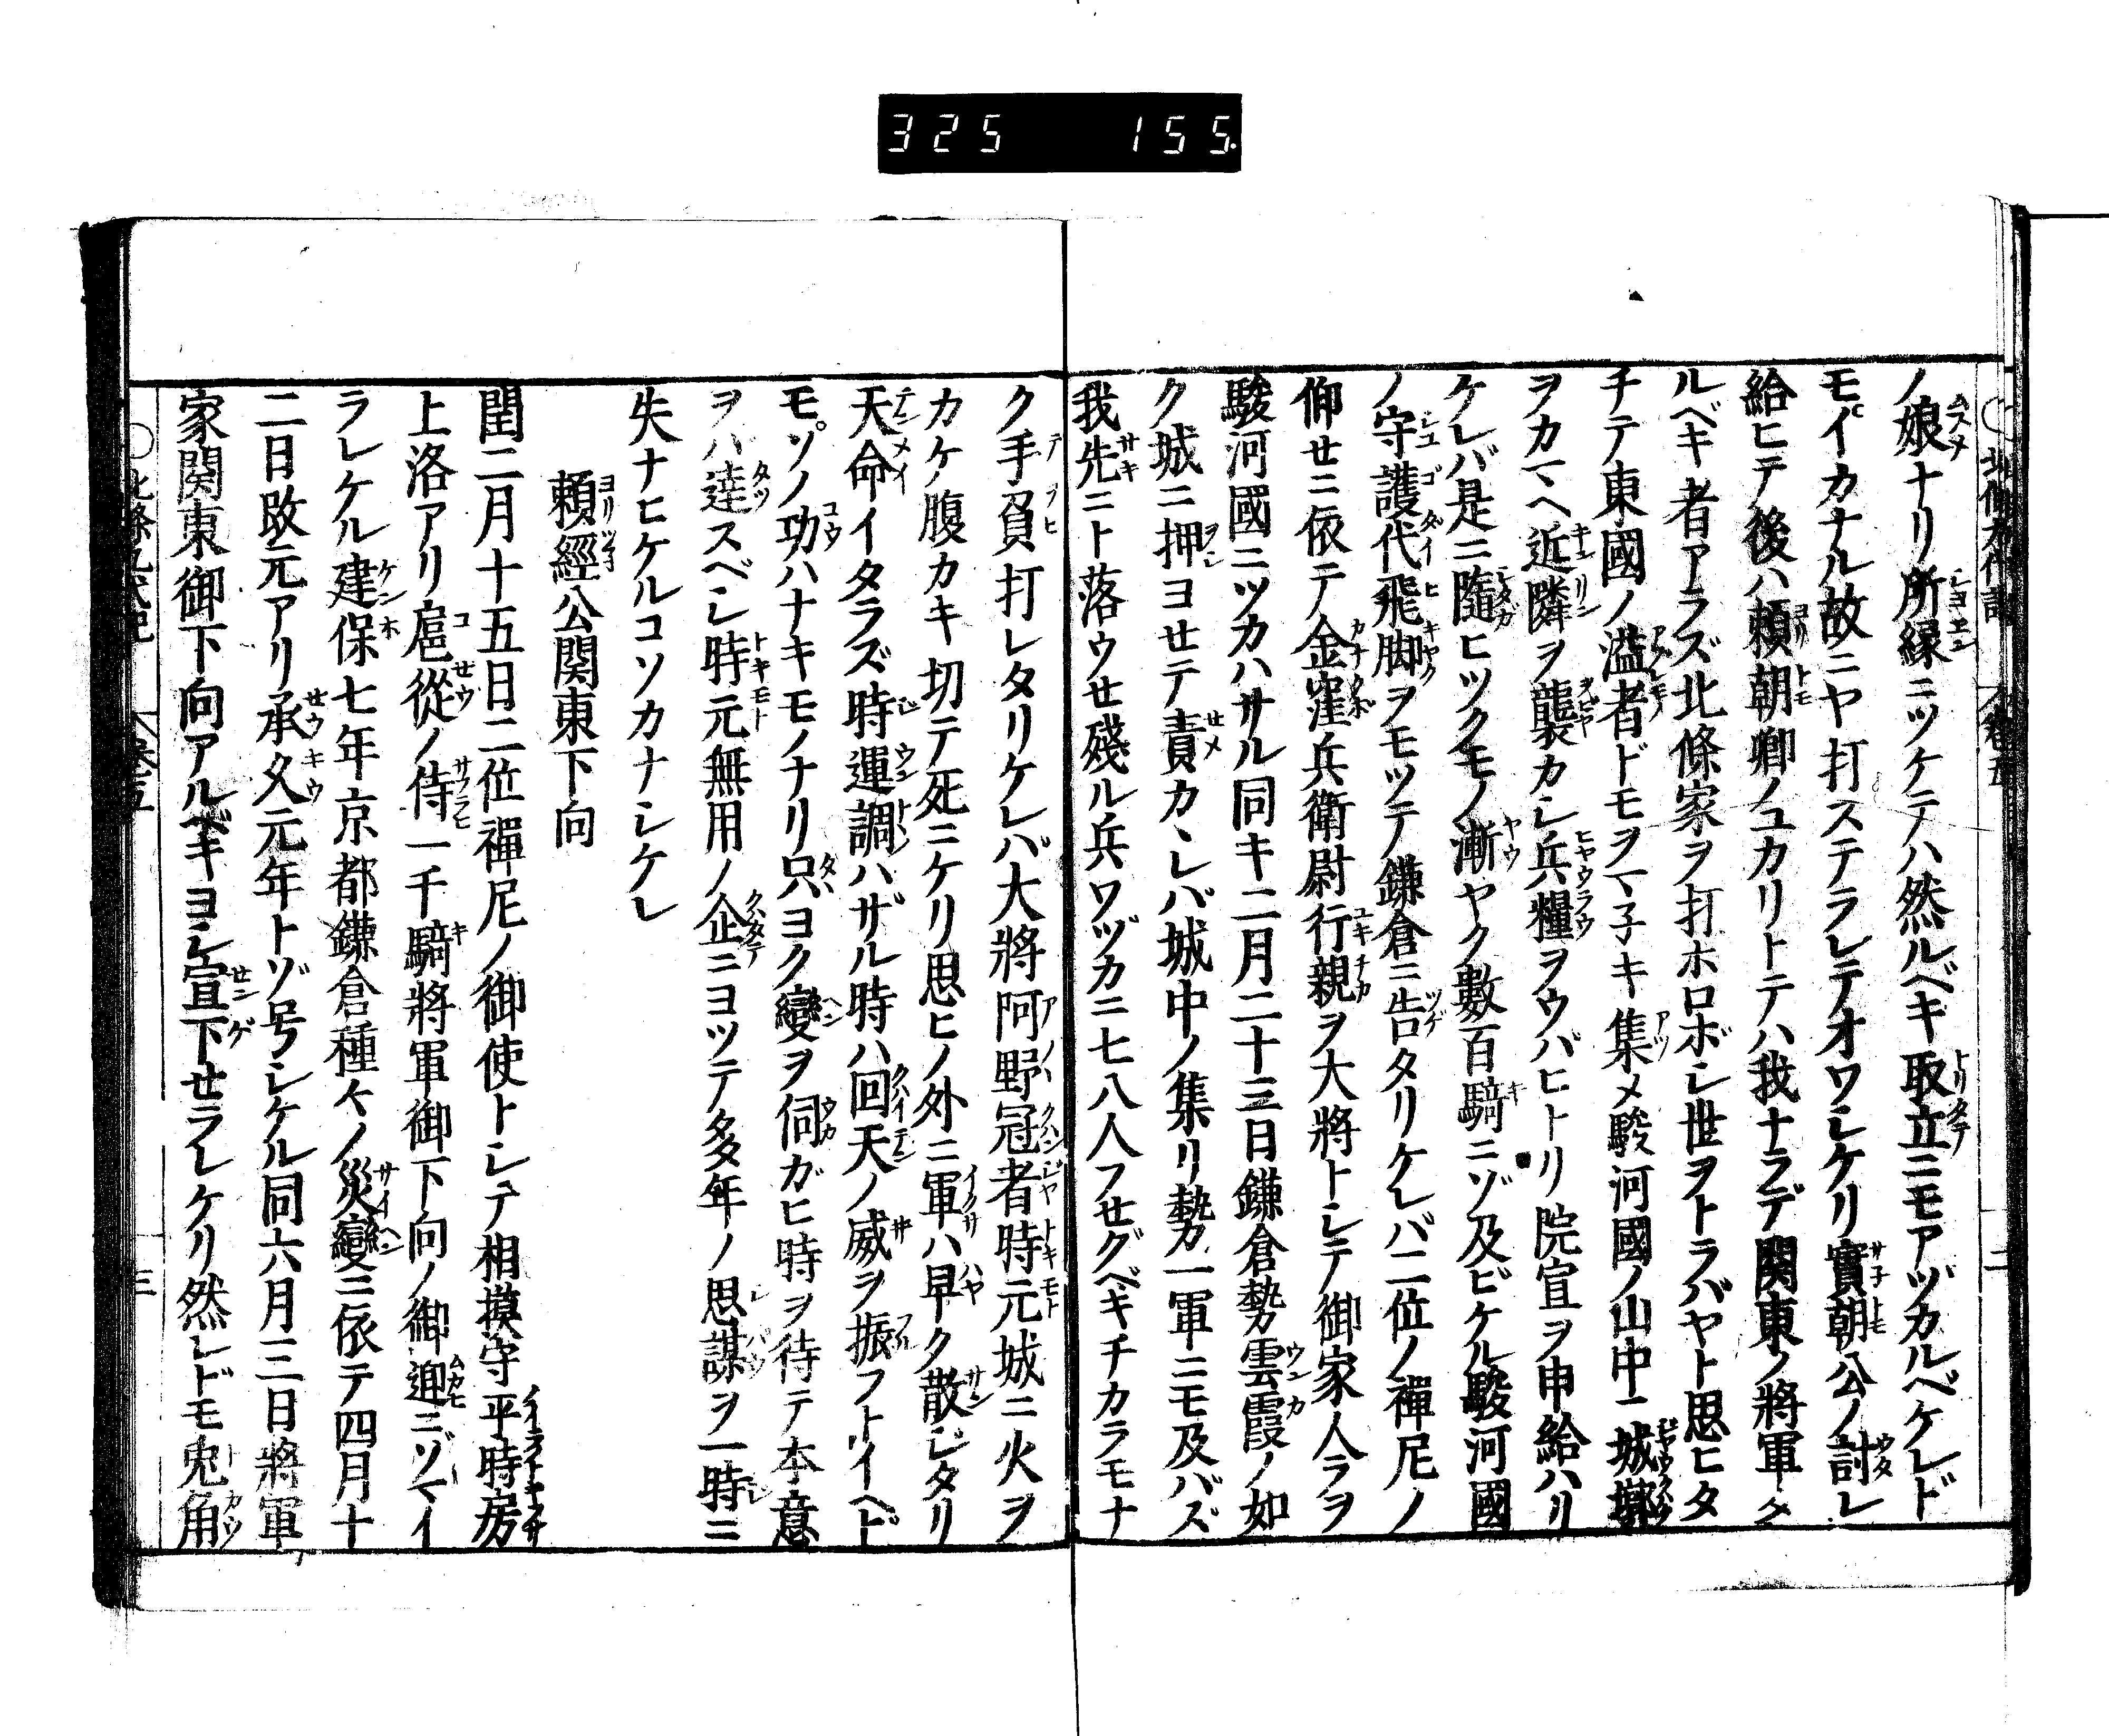 325 155.
ノ娘ナリ所縁ニツケテハ然ルベキ取立ニモアヅカルベケレド
モイカナル故ニヤ打ステラレテオワシケリ實朝公ノ討レ
給ヒテ後ハ頼朝卿ノユカリトテハ我ナラデ関東ノ將軍タ
ルベキ者アラズ北條家ヲ打ホロボシ世ヲトラバヤト思ヒタ
チテ東國ノ溢者ドモヲマ子キ集メ駿河國ノ山中ニ城墎
ヲカマヘ近隣ヲ襲カシ兵糧ヲウバヒトリ院宣ヲ申給ハリ
ケレバ是ニ隨ヒツクモノ漸ヤク數百騎ニゾ及ビケル駿河國
ノ守護代飛脚ヲモツテ鎌倉ニ告タリケレバ二位ノ禪尼ノ
仰せニ依テ金窪兵衛尉行親ヲ大將トシテ御家人ラヲ
駿河國ニツカハサル同キ二月二十三日鎌倉勢雲霞ノ如
ク城ニ押ヨせテ責カヽレバ城中ノ集リ勢一軍ニモ及バズ
我先ニト落ウせ殘ル兵ワヅカニ七八人フせグベキチカラモナ
ク手負打レタリケレバ大將阿野冠者時元城ニ火ヲ
カケ腹カキ切テ死ニケリ思ヒノ外ニ軍ハ早ク散ジタリ
天命イタラズ時運調ハザル時ハ回天ノ威ヲ振フトイヘド
モソノ功ハナキモノナリ只ヨク變ヲ伺ガヒ時ヲ待テ本意
ヲハ達スベシ時元無用ノ企ニヨツテ多年ノ思謀ヲ一時ニ
失ナヒケルコソカナシケレ
頼經公関東下向
閏二月十五日二位禪尼ノ御使トシテ相摸守平時房
上洛アリ扈從ノ侍一千騎將軍御下向ノ御迎ニゾマイ
ラレケル建保七年京都鎌倉種々ノ災變ニ依テ四月十
二日改元アリ承久元年トゾ号シケル同六月三日將軍
家関東御下向アルベキヨシ宣下せラレケリ然レドモ兎角